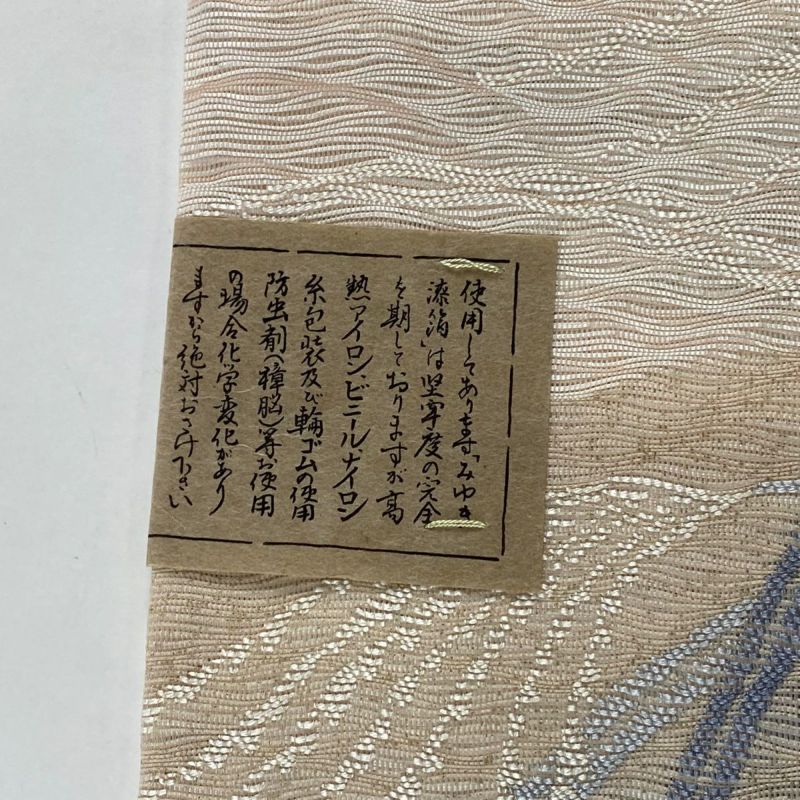 使用してあります「みゆき
漆箔」は堅牢度の完全
を期しておりますが高
熱アイロン・ビニール、ナイロン
糸包装及び輪ゴムの使用
防虫剤(樟脳)等お使用
の場合化学変化があり
ますから絶対おさけ下さい